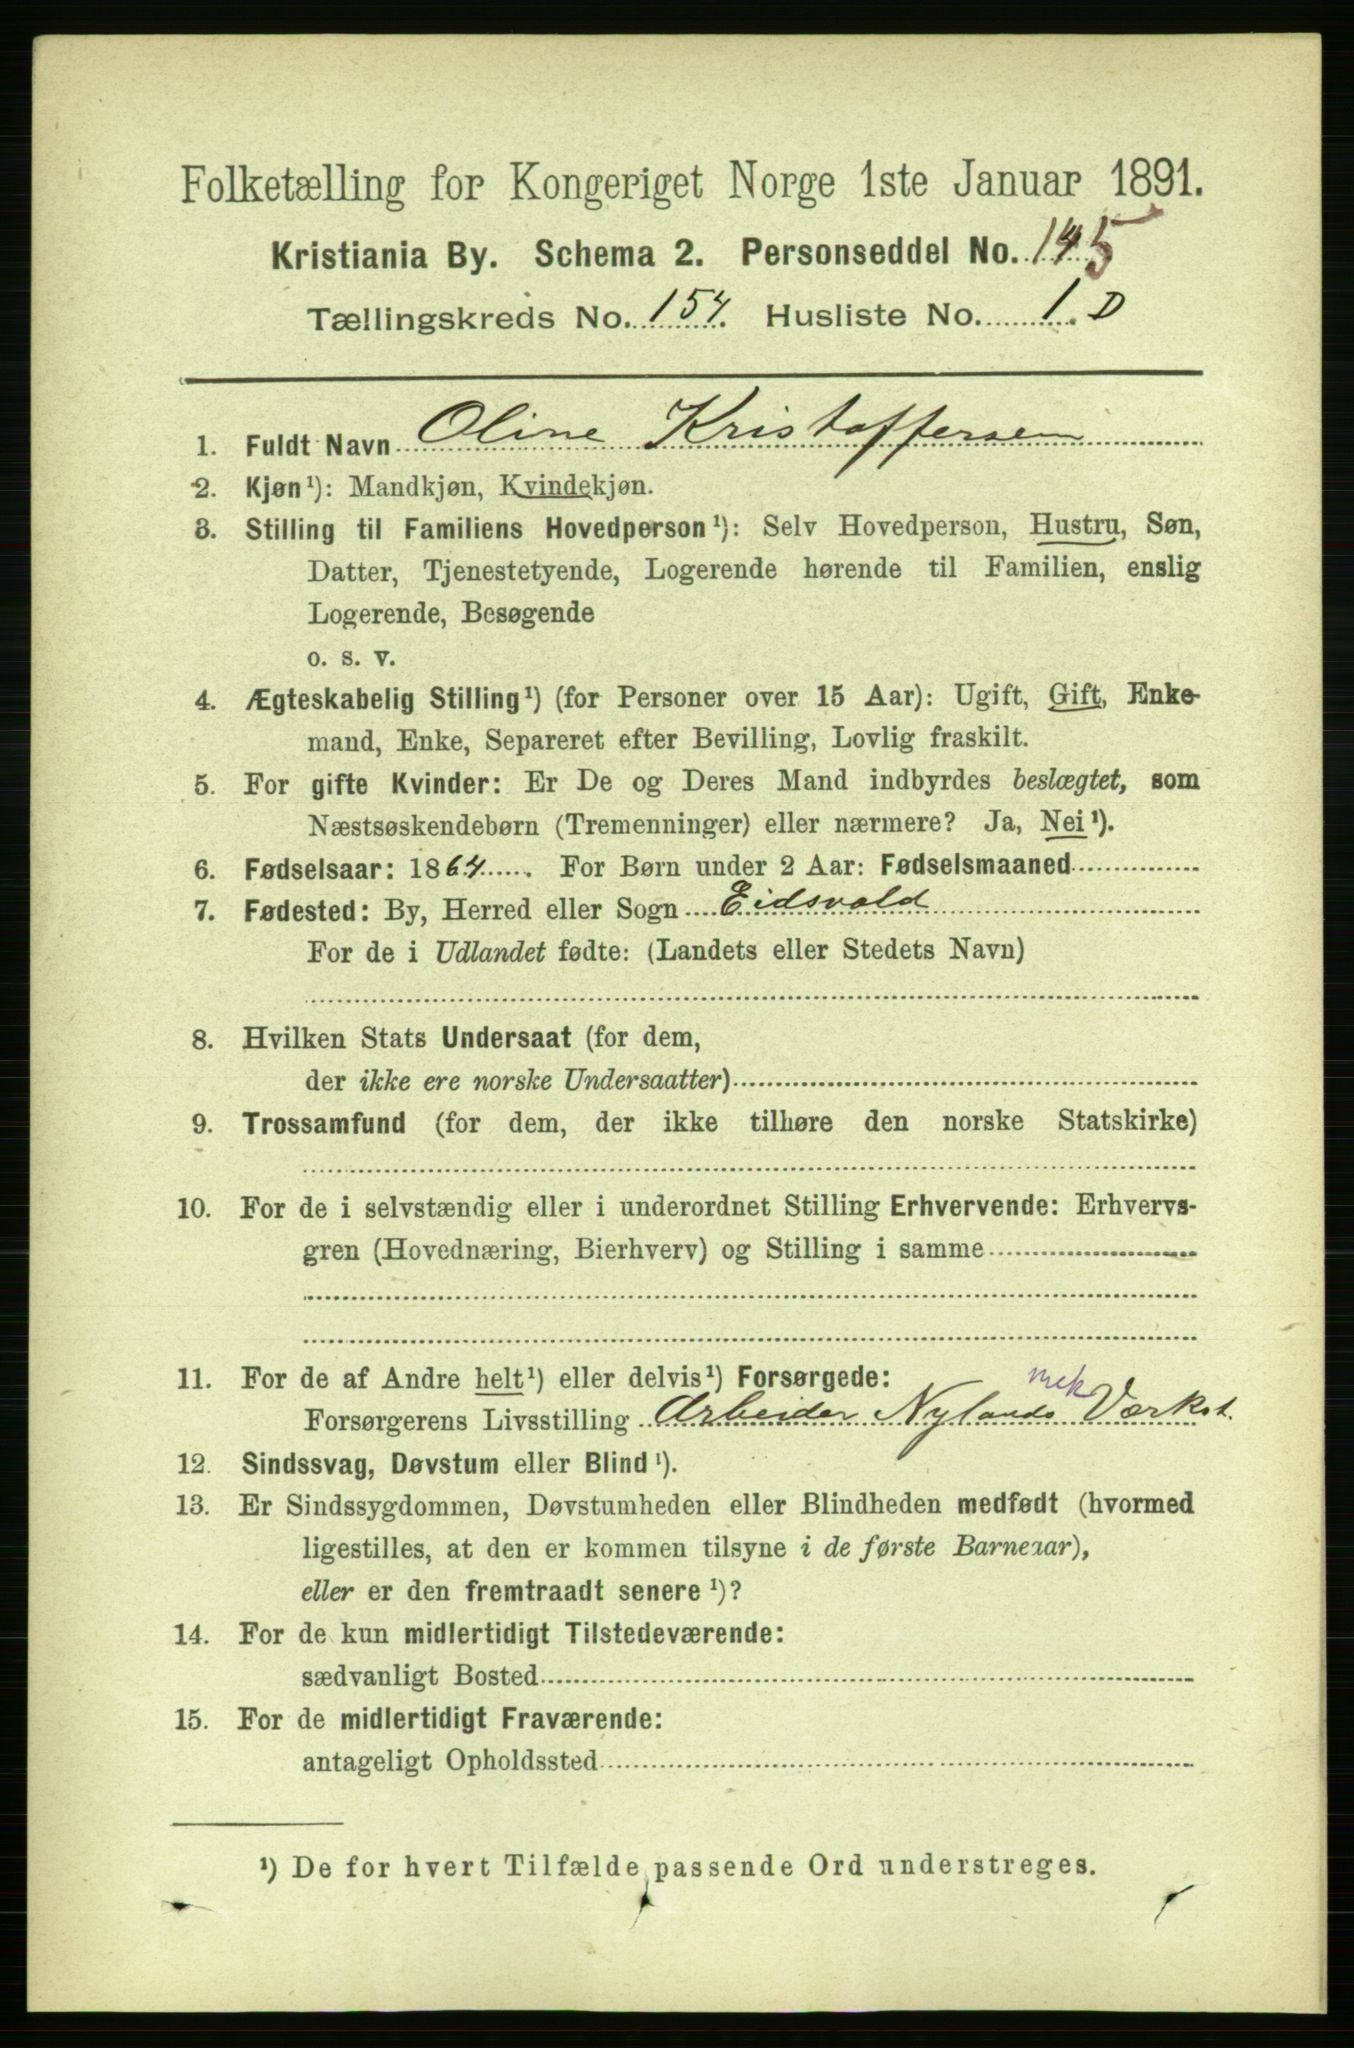 Folketælling for Kongeriget Norge 1ste Januar 1891.
Kristiania By. Schema 2. Personseddel No. 145
Tællingskreds No. 154. Husliste No. 1. D
1. Fuldt Navn Oline Kristoffersen
2. Kjøn¹): Mandkjøn, Kvindekjøn.
3. Stilling til Familiens Hovedperson¹): Selv Hovedperson, Hustru, Søn,
Datter, Tjenestetyende, Logerende hørende til Familien, enslig
Logerende, Besøgende
o. s. v.
4. Ægteskabelig Stilling¹) (for Personer over 15 Aar): Ugift, Gift, Enke-
mand, Enke, Separeret efter Bevilling, Lovlig fraskilt.
5. For gifte Kvinder: Er De og Deres Mand indbyrdes beslægtet, som
Næstsøskendebørn (Tremenninger) eller nærmere? Ja, Nei¹).
6. Fødselsaar: 1864. For Børn under 2 Aar: Fødselsmaaned
7. Fødested: By, Herred eller Sogn Eidsvold
For de i Udlandet fødte: (Landets eller Stedets Navn)
8. Hvilken Stats Undersaat (for dem,
der ikke ere norske Undersaatter)
9. Trossamfund (for dem, der ikke tilhøre den norske Statskirke)
10. For de i selvstændig eller i underordnet Stilling Erhvervende: Erhvervs-
gren (Hovednæring, Bierhverv) og Stilling i samme
11. For de af Andre helt¹) eller delvis¹) Forsørgede:
Forsørgerens Livsstilling Arbeider Nylands mek Værkst.
12. Sindssvag, Døvstum eller Blind¹).
13. Er Sindssygdommen, Døvstumheden eller Blindheden medfødt (hvormed
ligestilles, at den er kommen tilsyne i de første Barneaar),
eller er den fremtraadt senere¹)?
14. For de kun midlertidigt Tilstedeværende:
sædvanligt Bosted
15. For de midlertidigt Fraværende:
antageligt Opholdssted
¹) De for hvert Tilfælde passende Ord understreges.